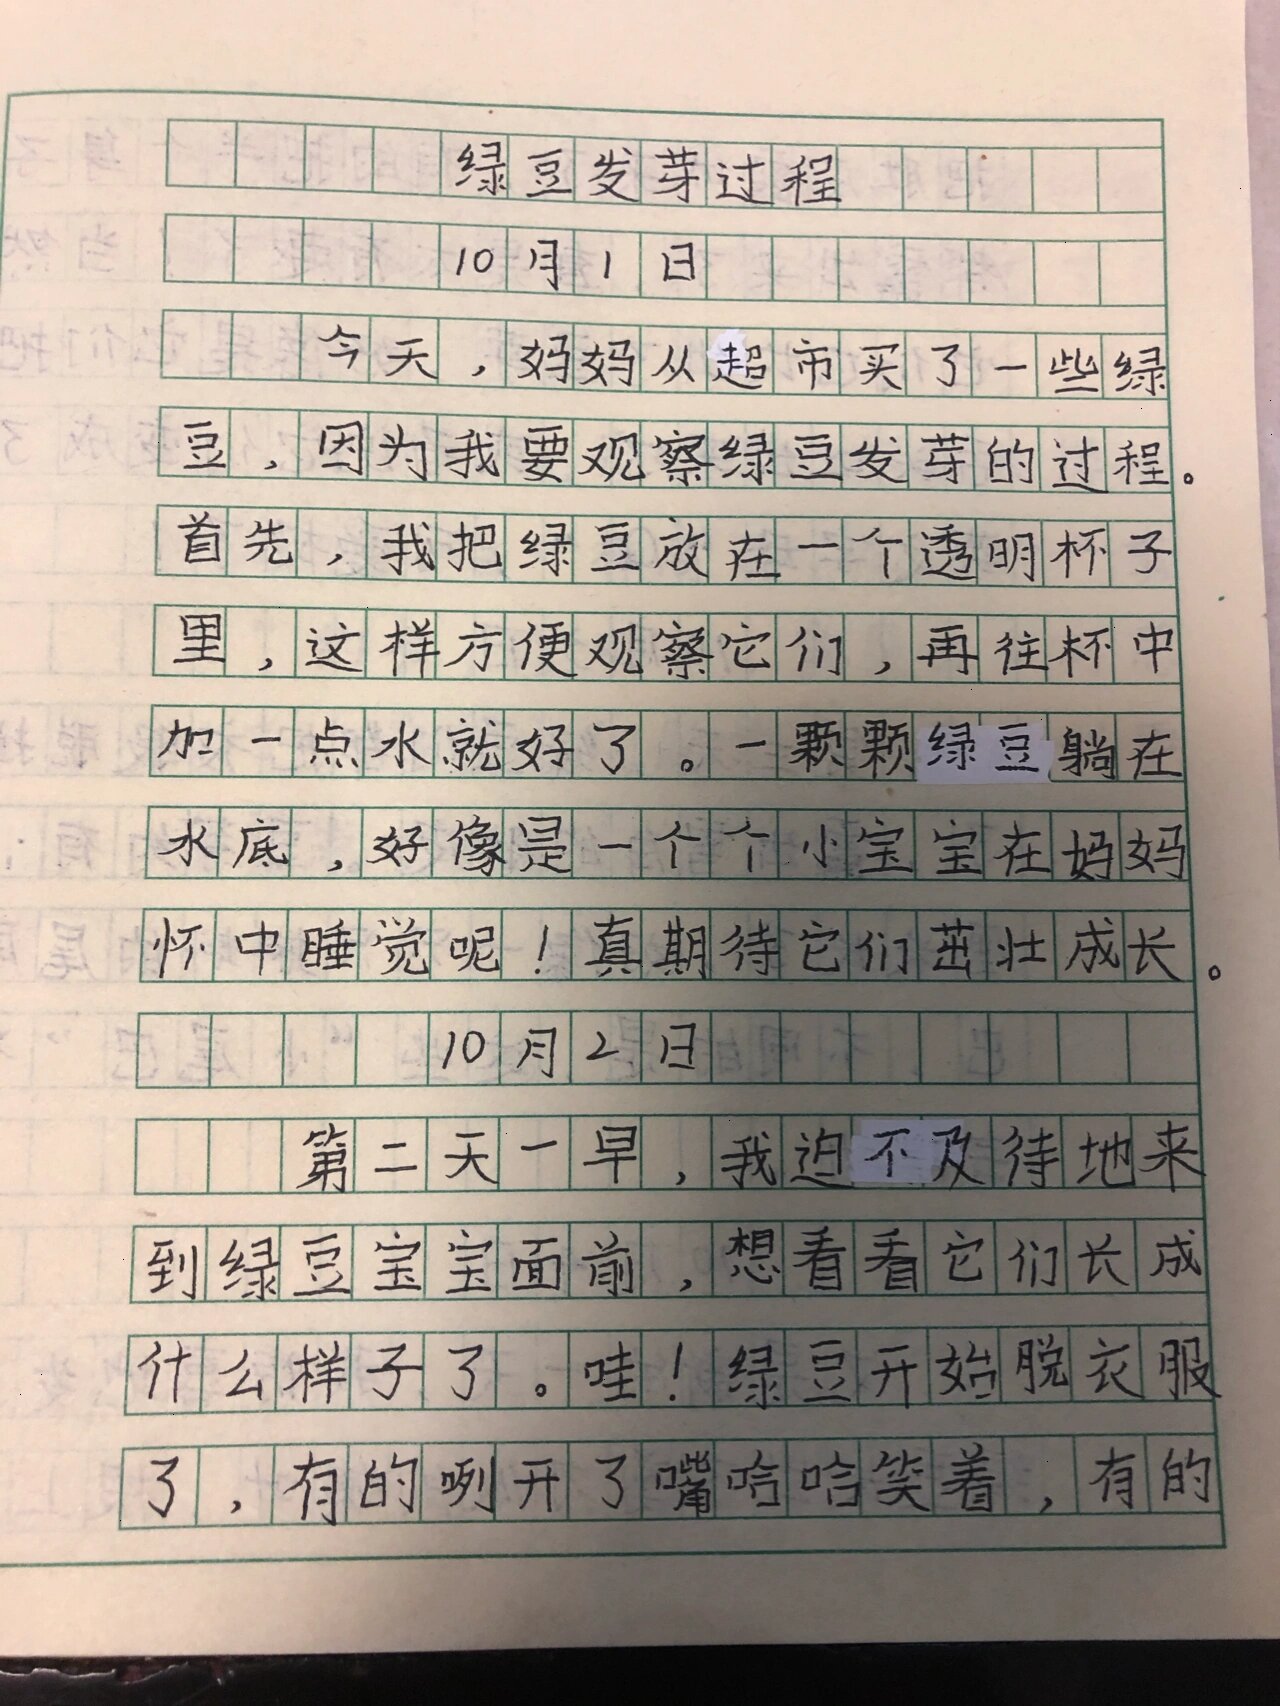 绿豆发芽过程
10月1日
今天，妈妈从超市买了一些绿
豆，因为我要观察绿豆发芽的过程。
首先，我把绿豆放在一个透明杯子
里，这样方便观察它们，再往杯中
加一点水就好了。一颗颗绿豆躺在
水底，好像是一个个小宝宝在妈妈
怀中睡觉呢！真期待它们茁壮成长。
10月2日
第二天一早，我迫不及待地来
到绿豆宝宝面前，想看看它们长成
什么样子了。哇！绿豆开始脱衣服
了，有的咧开了嘴哈哈笑着，有的